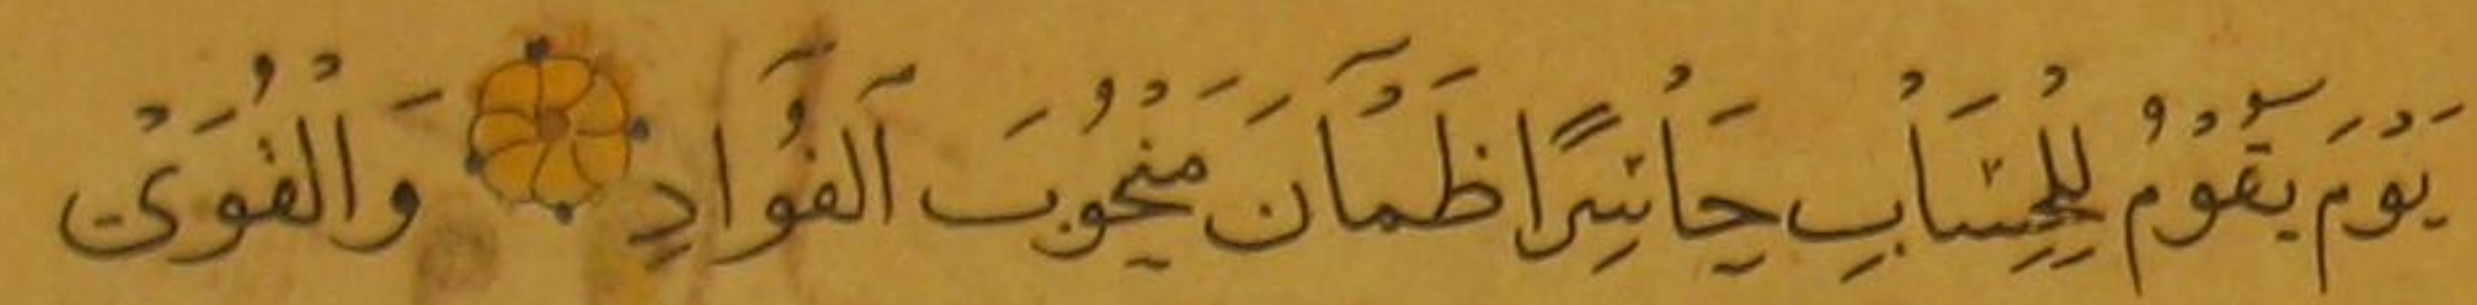 يَوْمَ يَقُوْمُ لِلْحِسَاْبِ حَاْئِرًا ظَمْآنَ مَنْخُوْبَ الفُؤَادِ وَالْقُوَىْ